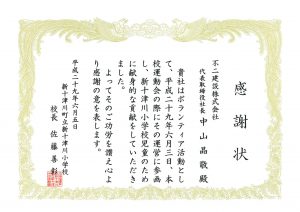 感謝状
不二建設株式会社
代表取締役社長 中山晶敬殿
貴社はボランティア活動とし
て、平成二十九年六月三日、本
校運動会の際にその運営に参画
し、新十津川小学校児童のため
に献身的な貢献をしていただき
ました。
よってそのご功労を讃え心よ
り感謝の意を表します。
平成二十九年六月五日
新十津川町立新十津川小学校
校長 佐藤善彰